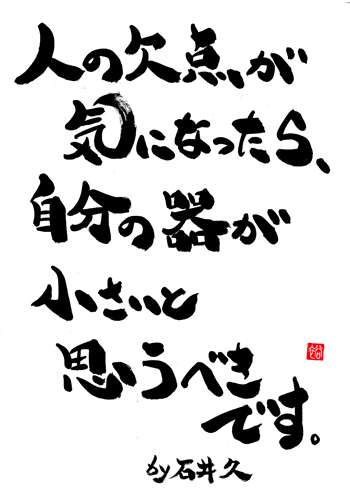 人の欠点が
気になったら、
自分の器が
小さいと
思うべき
です。
by石井久